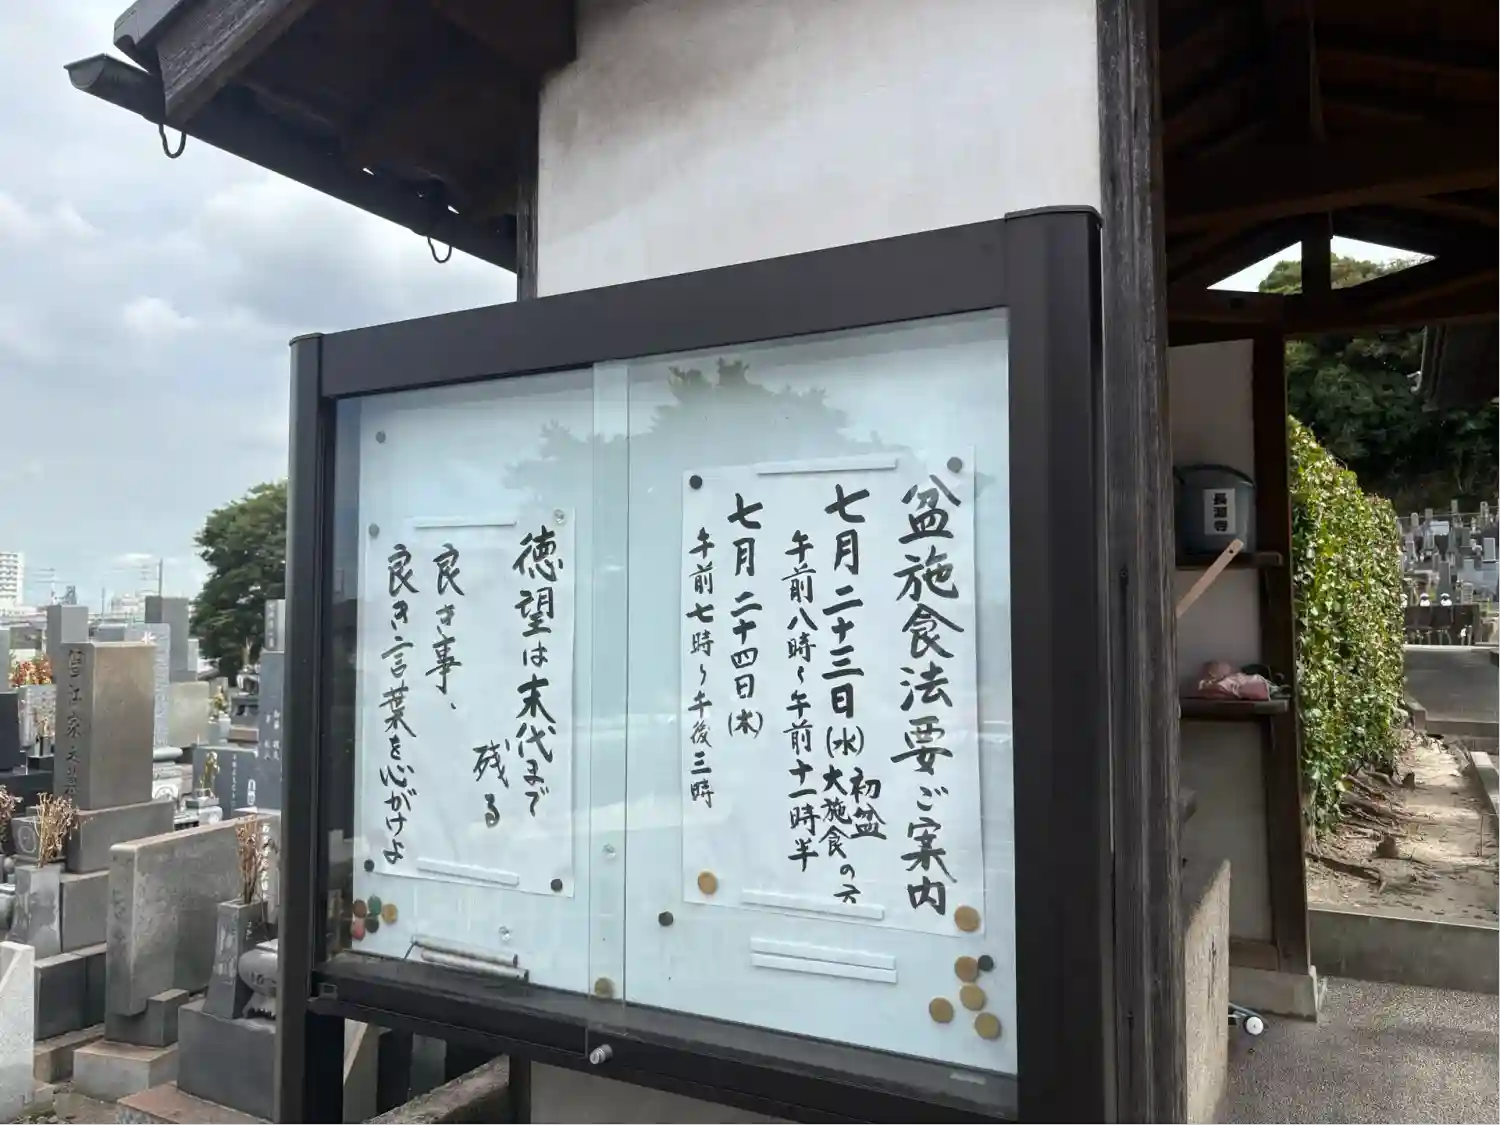 盆施食法要ご案内
七月二十三日(水)
初盆
大施食の方
午前八時〜午前十一時半
七月二十四日(木)
午前七時〜午後三時
徳望は末代まで
残る
良き事、
良き言葉を心がけよ
長瀧寺